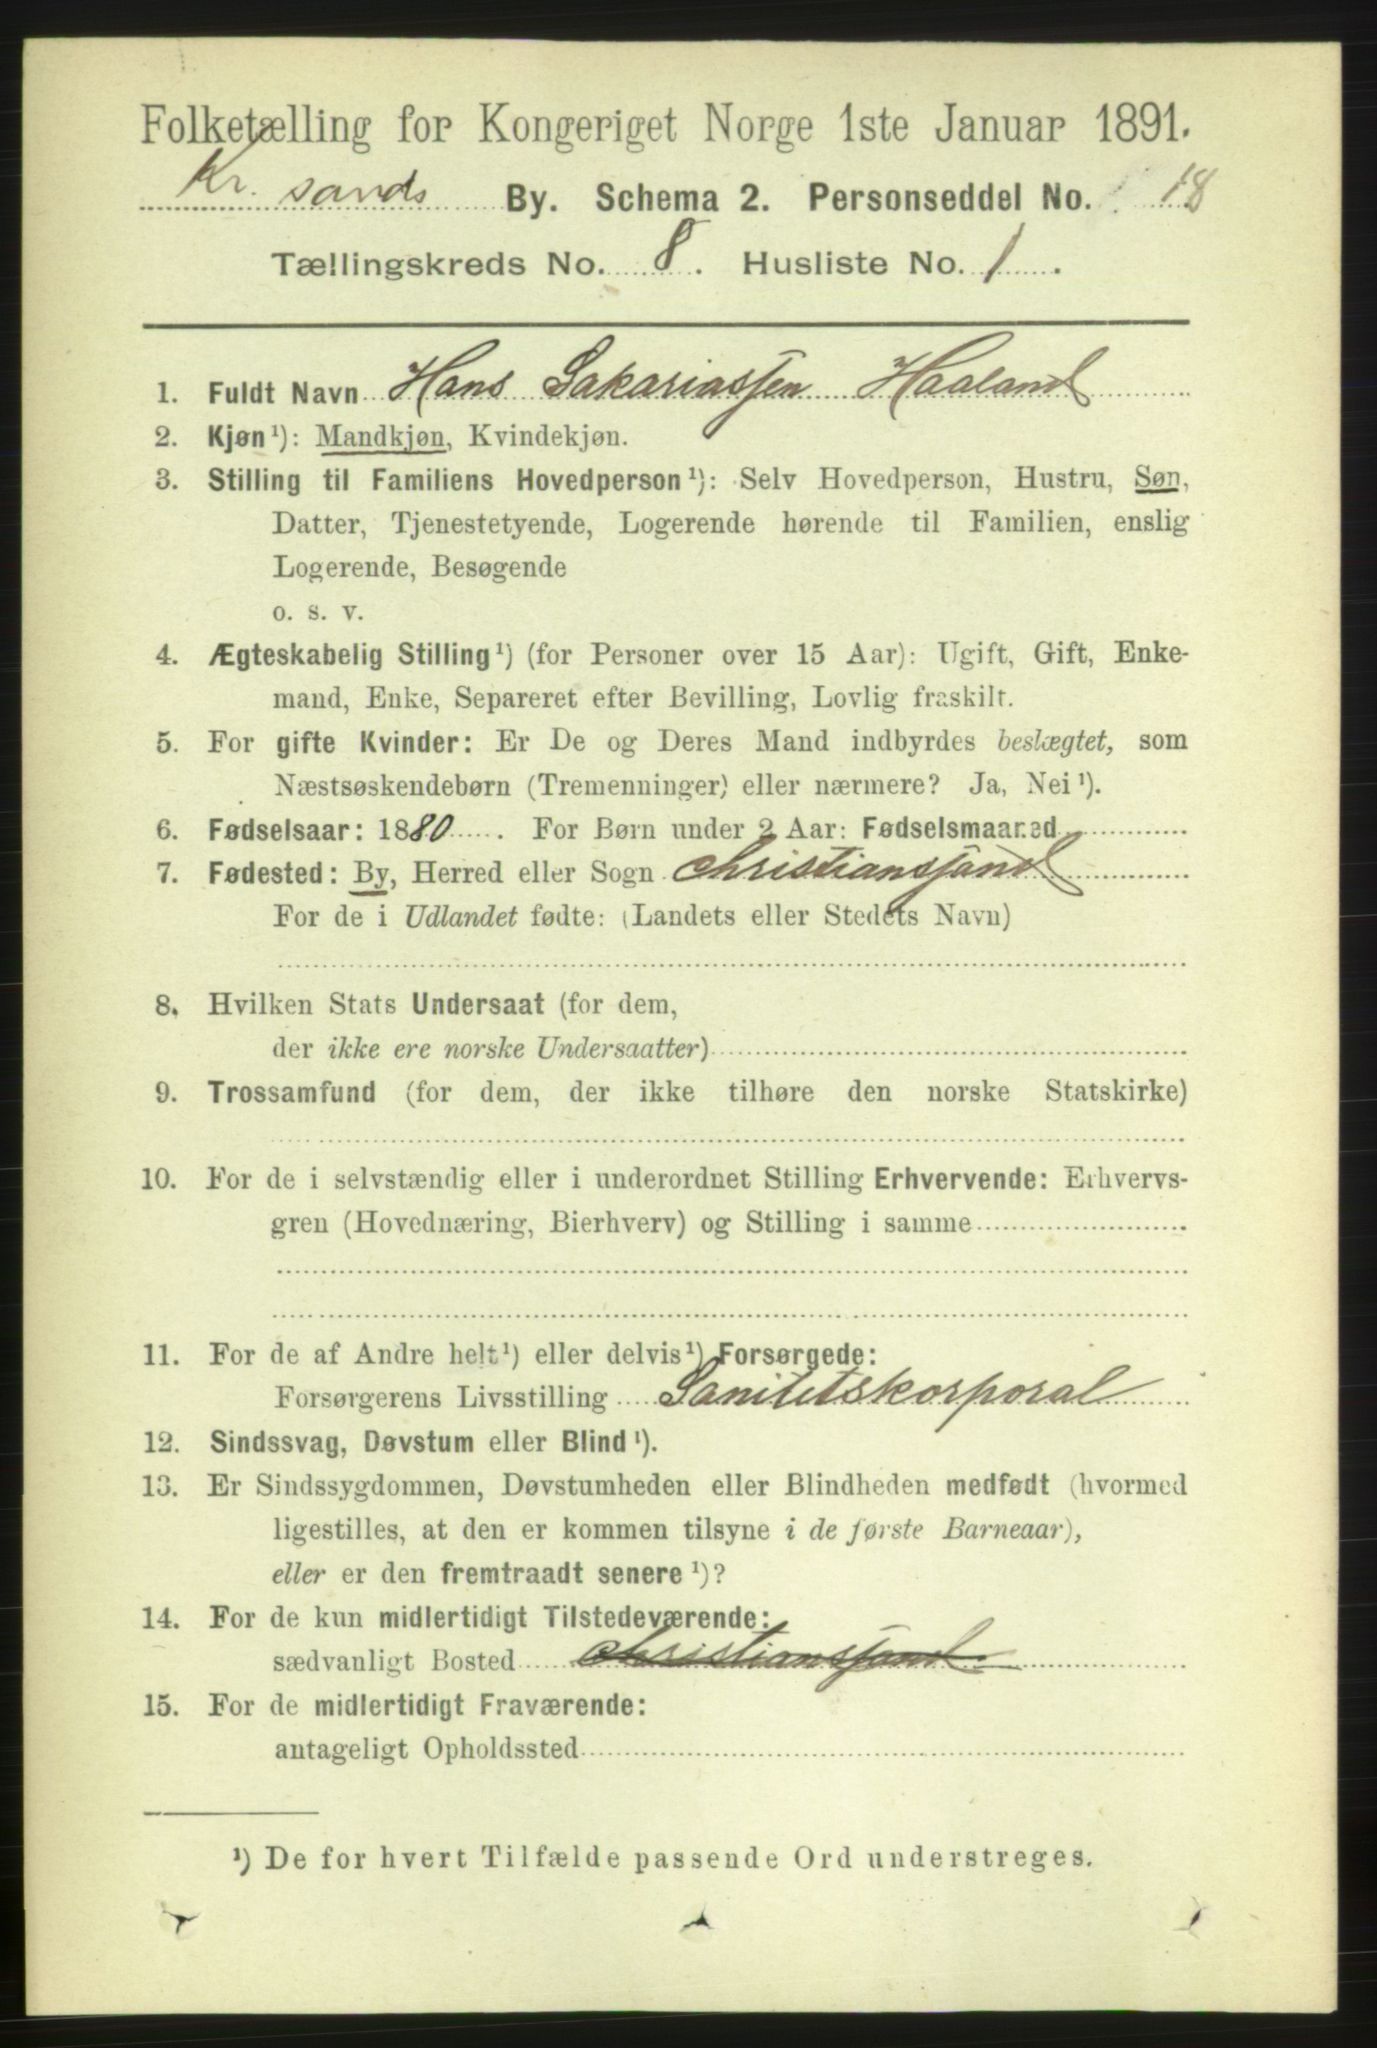 Folketælling for Kongeriget Norge 1ste Januar 1891.
Kr. sands By. Schema 2. Personseddel No. 18
Tællingskreds No. 8. Husliste No. 1.
1. Fuldt Navn Hans Sakariassen Haaland
2. Kjøn ¹): Mandkjøn, Kvindekjøn.
3. Stilling til Familiens Hovedperson ¹): Selv Hovedperson, Hustru, Søn,
Datter, Tjenestetyende, Logerende hørende til Familien, enslig
Logerende, Besøgende
o. s. v.
4. Ægteskabelig Stilling ¹) (for Personer over 15 Aar): Ugift, Gift, Enke-
mand, Enke, Separeret efter Bevilling, Lovlig fraskilt.
5. For gifte Kvinder: Er De og Deres Mand indbyrdes beslægtet, som
Næstsøskendebørn (Tremenninger) eller nærmere? Ja, Nei ¹).
6. Fødselsaar: 1880. For Børn under 2 Aar: Fødselsmaaned
7. Fødested: By, Herred eller Sogn christianssand
For de i Udlandet fødte: (Landets eller Stedets Navn)
8. Hvilken Stats Undersaat (for dem,
der ikke ere norske Undersaatter)
9. Trossamfund (for dem, der ikke tilhøre den norske Statskirke)
10. For de i selvstændig eller i underordnet Stilling Erhvervende: Erhvervs-
gren (Hovednæring, Bierhverv) og Stilling i samme
11. For de af Andre helt ¹) eller delvis ¹) Forsørgede:
Forsørgerens Livsstilling Sanitetskorporal
12. Sindssvag, Døvstum eller Blind ¹).
13. Er Sindssygdommen, Døvstumheden eller Blindheden medfødt (hvormed
ligestilles, at den er kommen tilsyne i de første Barneaar),
eller er den fremtraadt senere ¹)?
14. For de kun midlertidigt Tilstedeværende:
sædvanligt Bosted christianssand
15. For de midlertidigt Fraværende:
antageligt Opholdssted
¹) De for hvert Tilfælde passende Ord understreges.